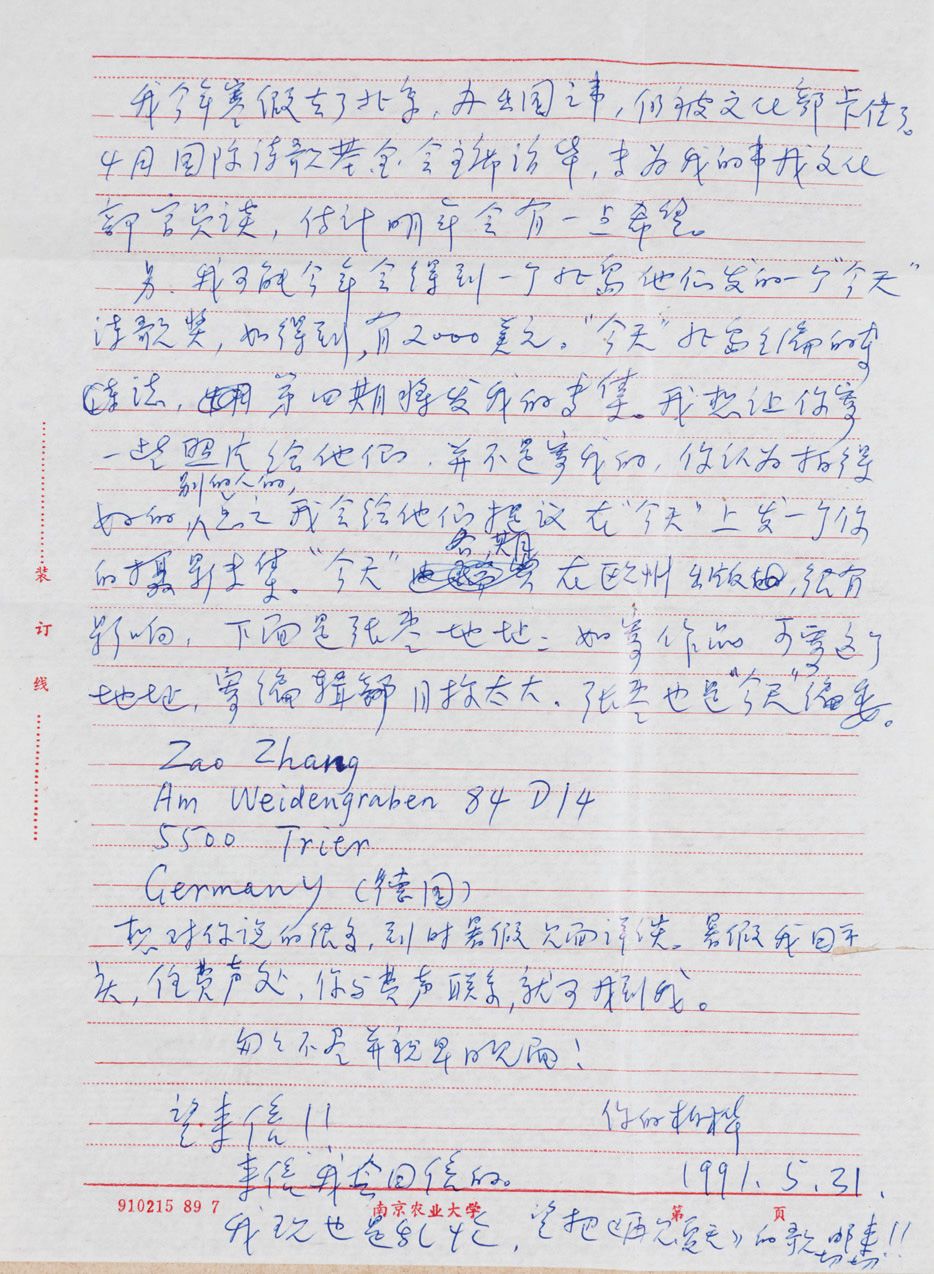 我今年寒假去了北京，办出国之事，仍被文化部卡住了。
4月国际诗歌基金会主席访华，专为我的事找文化
部官员谈，估计明年会有一点希望。
另，我可能今年会得到一个北岛他们发的一个"今天"
诗歌奖，如得到，有2000美元。"今天"北岛主编的
第四期将发我的专集。我想让你寄
一些照片给他们，并不是寄我的，你认为拍得
别的人的，
好的，总之我会给他们提议在"今天"上发一个你
各期
的摄影专集。"今天"在欧州出版，很有
影响，下面是张枣地址：如寄作品可寄这个
地址，寄编辑部月按太太。张枣也是"今天"编委。
Zao Zhang
Am Weidengraben 84 D14
5500 Trier
Germany (德国)
想对你说的很多，到时暑假见面详谈。暑假我回重
庆，住费声处，你与费声联系，就可找到我。
匆匆不尽并祝早日见面！
望来信！！ 你的柏桦
来信我会回信的。 1991.5.31.
910215 89 7 南京农业大学 第 页
我现也是乱忙，望把《再见夏天》的歌寄来！！
装
订
线